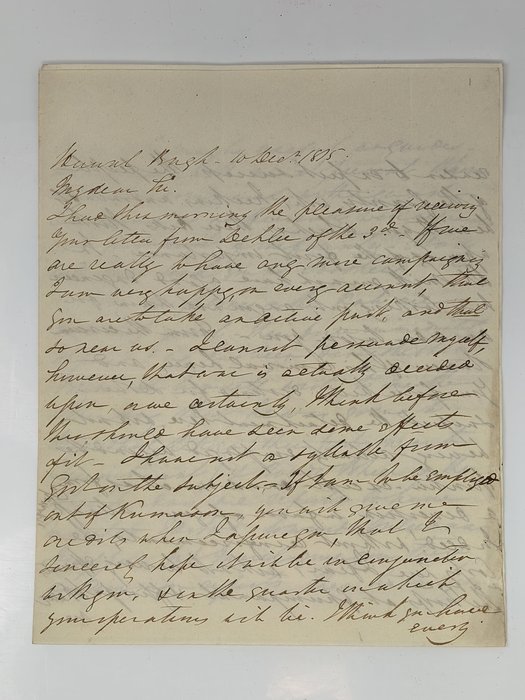 Hawul Bagh - 10 Decr. 1815.
My dear Sir.
I had this morning the pleasure of receiving
your letter from Dehlee of the 3d. - If we
are really to have any more campaigning
I am very happy, on every account that
you are to take an active part, and that
so near us. - I cannot persuade myself,
however, that war is actually decided
upon, as we certainly, I think before
this should have seen some effects
of it - I have not a syllable from
Govt. on the subject. - If I am to be employed
out of Kumaon, you will give me
credit when I assure you, that I
sincerely hope it will be in conjunction
with you, & in the quarter in which
your operations will lie. I think you have
every